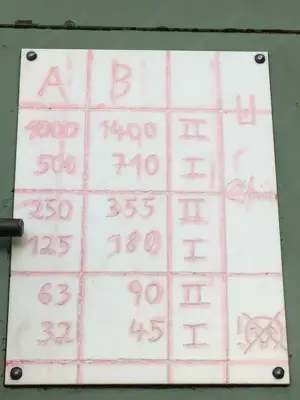 A B
1000 1400 II
500 710 I
250 355 II
125 180 I
63 90 II
32 45 I